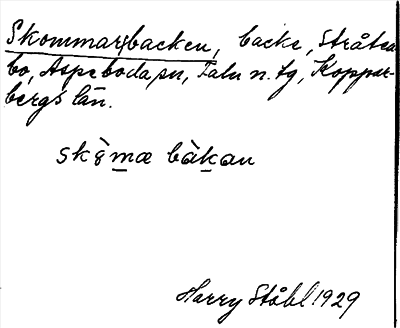 Skommar(backen, backe, Stråten-
bo, Aspeboda sn, Falu n. tg, Koppar-
bergs län.
skò̤m̲æ bàk̲an
Harry Ståhl 1929